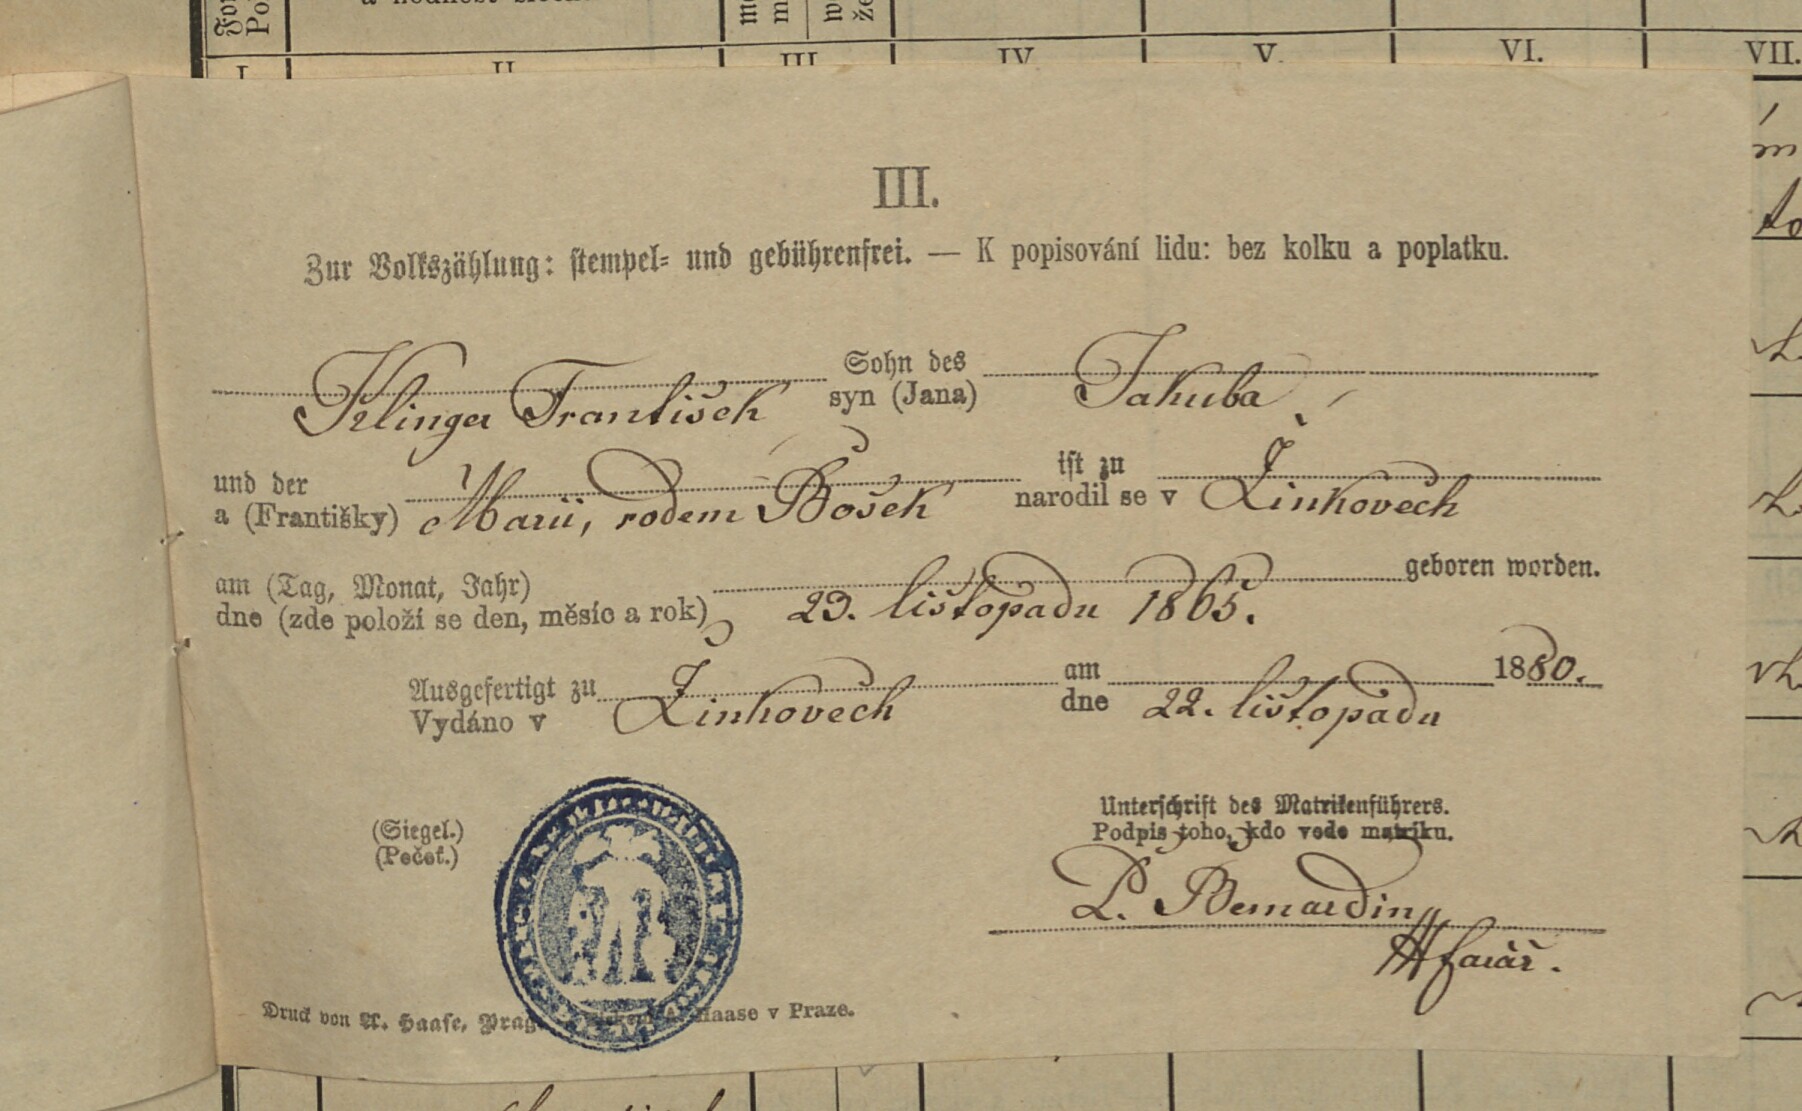 I. II. III. IV. V. VI. VII.
III.
Zur Volkszählung: stempel- und gebührenfrei. — K popisování lidu: bez kolku a poplatku.
Klinger František Sohn des Jakuba
syn (Jana)
und der Marii, rodem Bošek ist zu Žinkovech
a (Františky) narodil se v
am (Tag, Monat, Jahr) 23. listopadu 1865. geboren worden.
dne (zde položí se den, měsíc a rok)
Ausgefertigt zu Žinkovech am 22. listopadu 1880.
Vydáno v dne
(Siegel.) Unterschrift des Matrikenführers.
(Pečeť.) Podpis toho, kdo vede matriku.
P. Bernardin
farář.
Druck von A. Haase, Prag. A. Haase v Praze.